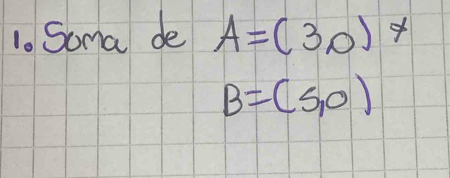 1. Soma de A=(3,0) +
B=(5,0)